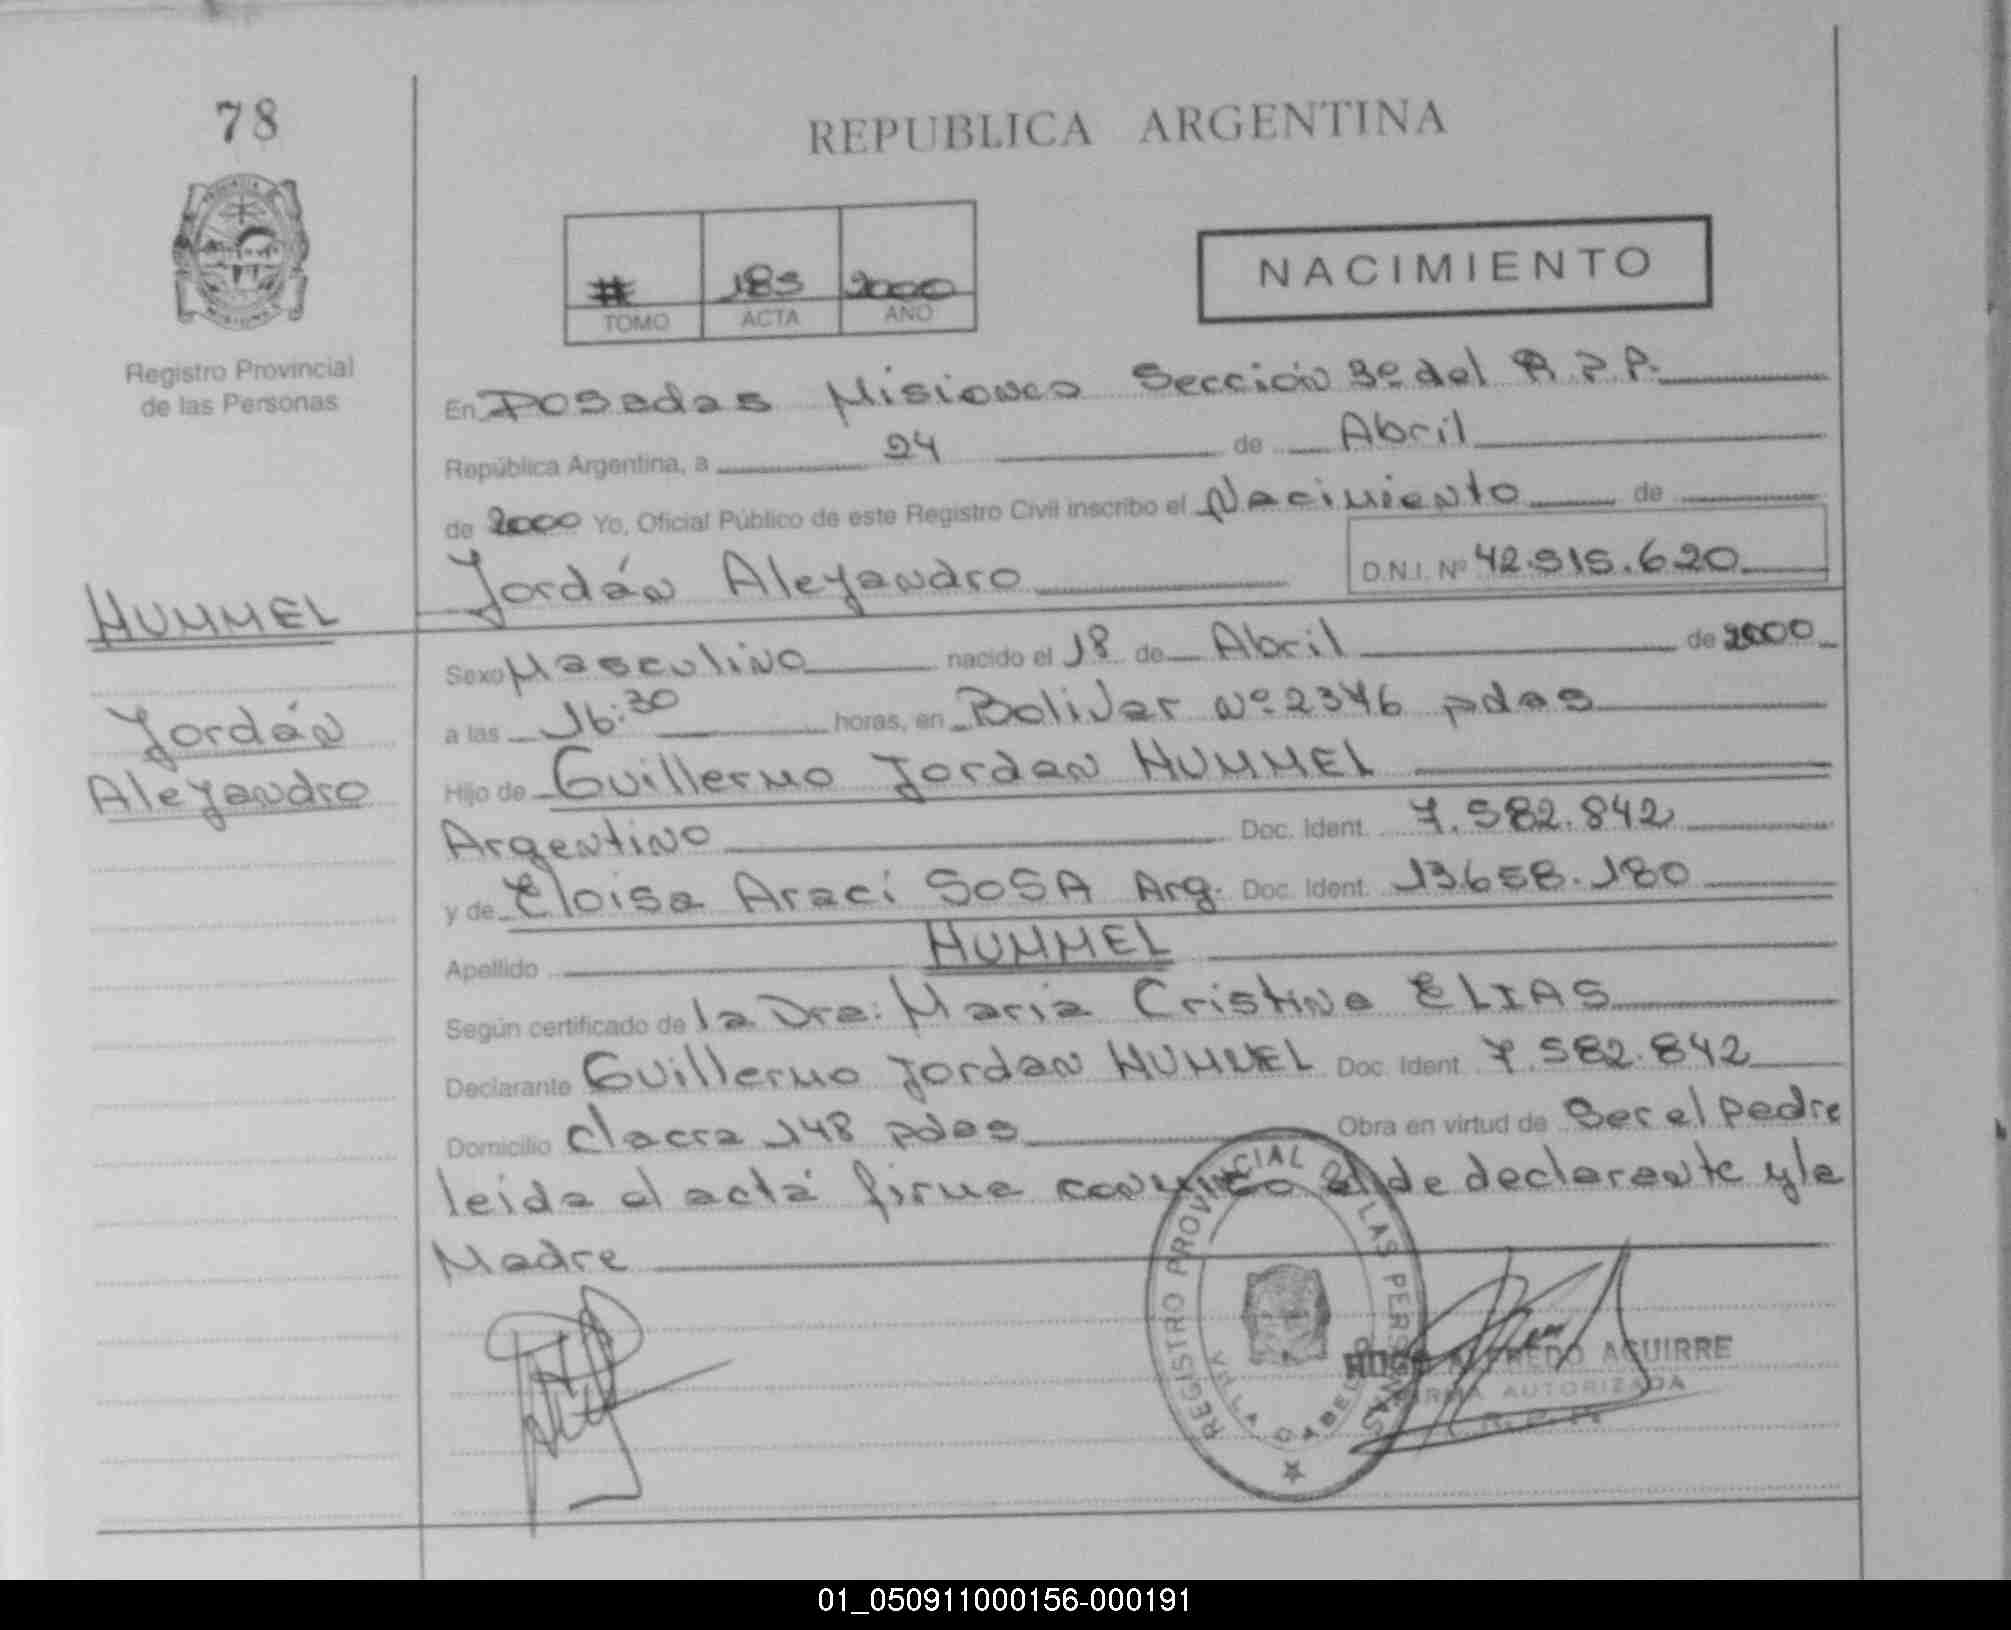 78
REPUBLICA ARGENTINA
# 185 2000
TOMO ACTA AÑO
NACIMIENTO
Registro Provincial
de las Personas
En Posadas Misiones Sección 3º del R.P.P.
República Argentina, a 24 de Abril
de 2000 Yo, Oficial Público de este Registro Civil inscribo el Nacimiento de
Jordán Aleyandro D.N.I. Nº 42.515.620
HUMMEL
Jordán
Aleyandro
Sexo Masculino nacido el 18 de Abril de 2000
a las 16:30 horas, en Bolivar Nº 2346 pdas
Hijo de Guillermo Jordan HUMMEL
Argentino Doc. Ident. 7.582.842
y de Eloisa Araci SOSA Arg. Doc. Ident. 13.658.180
Apellido HUMMEL
Según certificado de la Dra: Maria Cristina ELIAS
Declarante Guillermo Jordan HUMMEL Doc. Ident. 7.582.842
Domicilio Chacra 148 pdas Obra en virtud de Ser el padre
leida el acta firma conmigo el de declarante y la
Madre
REGISTRO PROVINCIAL DE LAS PERSONAS
VILLA CABELLO
HUGO ALFREDO AGUIRRE
FIRMA AUTORIZADA
R. P. P.
01_050911000156-000191